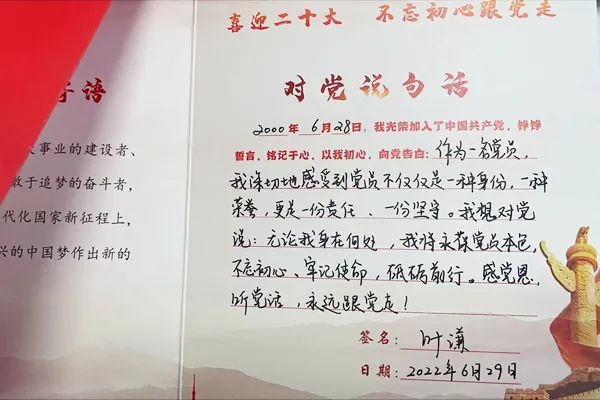 喜迎二十大 不忘初心跟党走
寄语
对党说句话
事业的建设者、
敢于追梦的奋斗者,
代化国家新征程上,
兴的中国梦作出新的
2000年 6月28日,我光荣加入了中国共产党,铮铮
誓言,铭记于心,以我初心,向党告白:作为一名党员,
我深切地感受到党员不仅仅是一种身份,一种
荣誉,更是一份责任、一份坚守。我想对党
说:无论我身在何处,我将永葆党员本色,
不忘初心、牢记使命,砥砺前行。感党恩,
听党话,永远跟党走!
签名:叶谦
日期:2022年6月29日